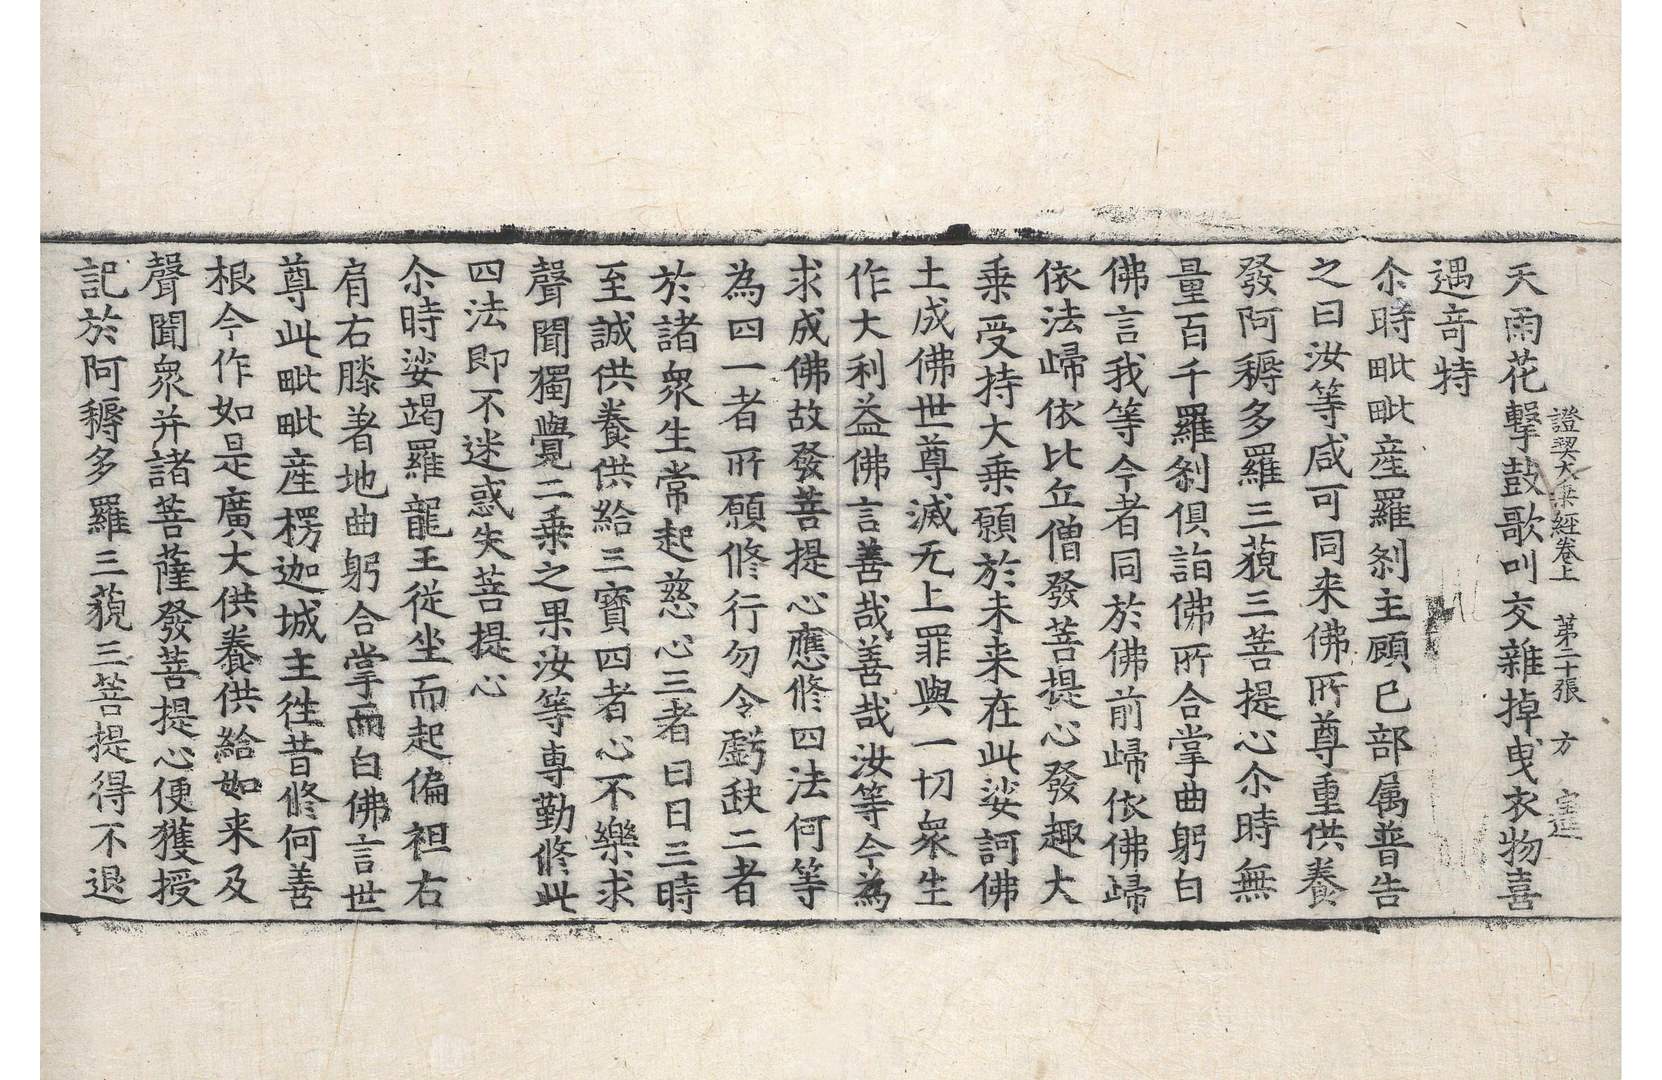 證契大乘經卷上　第二十張　方
天雨花擊鼓歌叫交雜掉曳衣物喜
遇奇特
尒時毗毗産羅刹主顧已部属普告
之曰汝等咸可同来佛所尊重供養
發阿耨多羅三藐三菩提心尒時無
量百千羅刹俱詣佛所合掌曲躬白
佛言我等今者同於佛前歸依佛歸
依法歸依比丘僧發菩提心發趣大
乗受持大乗願於未来在此娑訶佛
土成佛世尊滅无上罪與一切衆生
作大利益佛言善哉善哉汝等今為
求成佛故發菩提心應修四法何等
為四一者所願修行勿令虧缺二者
於諸衆生常起慈心三者日日三時
至誠供養供給三寳四者心不樂求
聲聞獨覺二乗之果汝等専勤修此
四法即不迷惑失菩提心
尒時娑竭羅龍王從坐而起偏袒右
肩右膝著地曲躬合掌而白佛言世
尊此毗毗産楞迦城主徃昔修何善
根今作如是廣大供養供給如来及
聲聞衆并諸菩薩發菩提心便獲授
記於阿耨多羅三藐三菩提得不退